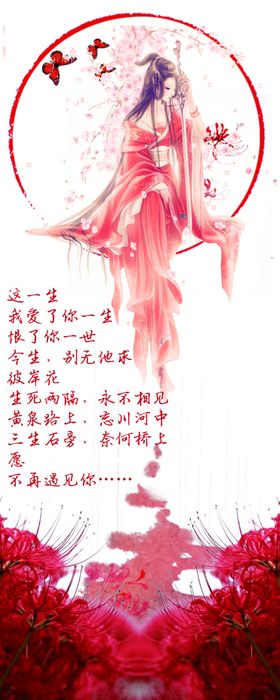 这一生
我爱了你一生
恨了你一世
今生，别无他求
彼岸花
生死两隔，永不相见
黄泉路上，忘川河中
三生石旁，奈何桥上
愿
不再遇见你……